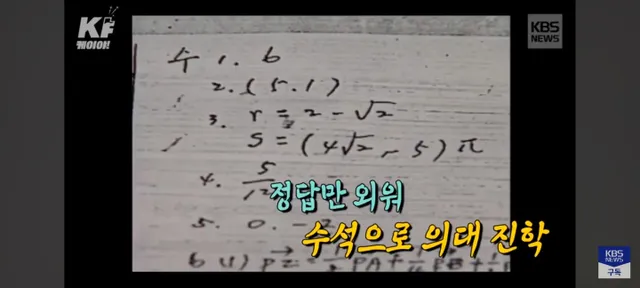 KF
케이야!
KBS
NEWS
수 1. 6
2. (5.1)
3. r = 2 - √2
S = (4√2 - 5) π
4. 5
정답만 외워
5. 0.
수석으로 의대 진학
6 (1)
KBS
NEWS
구독